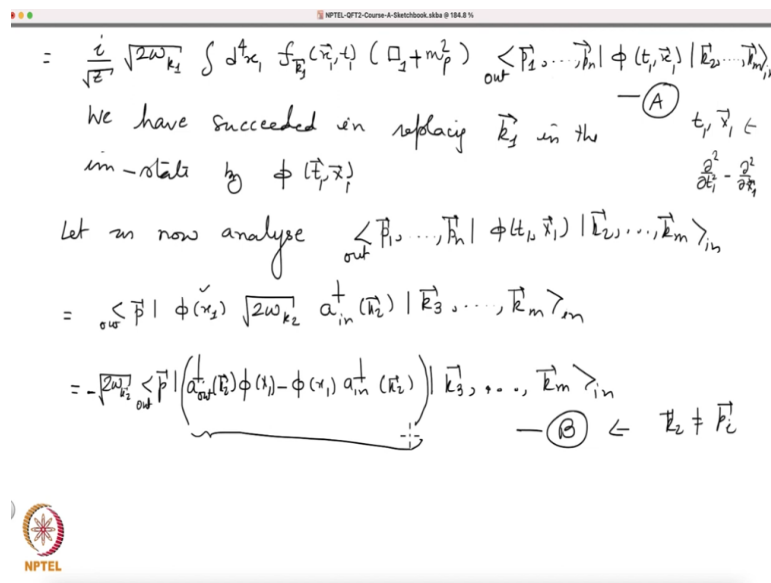 NPTEL-QFT2-Course-A-Sketchbook.skba @ 184.8 %
= i/√Z √2ω_k₁ ∫ d⁴x₁ f_k⃗₁(x⃗₁,t₁) (□₁+m_p²) out<p⃗₁,...,p⃗n| φ(t₁,x⃗₁) |k⃗₂,...,k⃗m>in
— Ⓐ
We have succeeded in replacing k⃗₁ in the t₁, x⃗₁ ←
in-state by φ(t⃗₁,x⃗₁) ∂²/∂t₁² - ∂²/∂x₁²
Let us now analyse out<p⃗₁,...,p⃗n| φ(t₁,x⃗₁) |k⃗₂,...,k⃗m>in
= out<p⃗| φ(x₁) √2ω_k₂ a†in(k⃗₂) |k⃗₃,...,k⃗m>in
= -√2ω_k₂ out<p⃗| (a†out(k⃗₂)φ(x₁) - φ(x₁) a†in(k⃗₂)) |k⃗₃,...,k⃗m>in
— Ⓑ ← k⃗₂ ≠ p⃗i
NPTEL